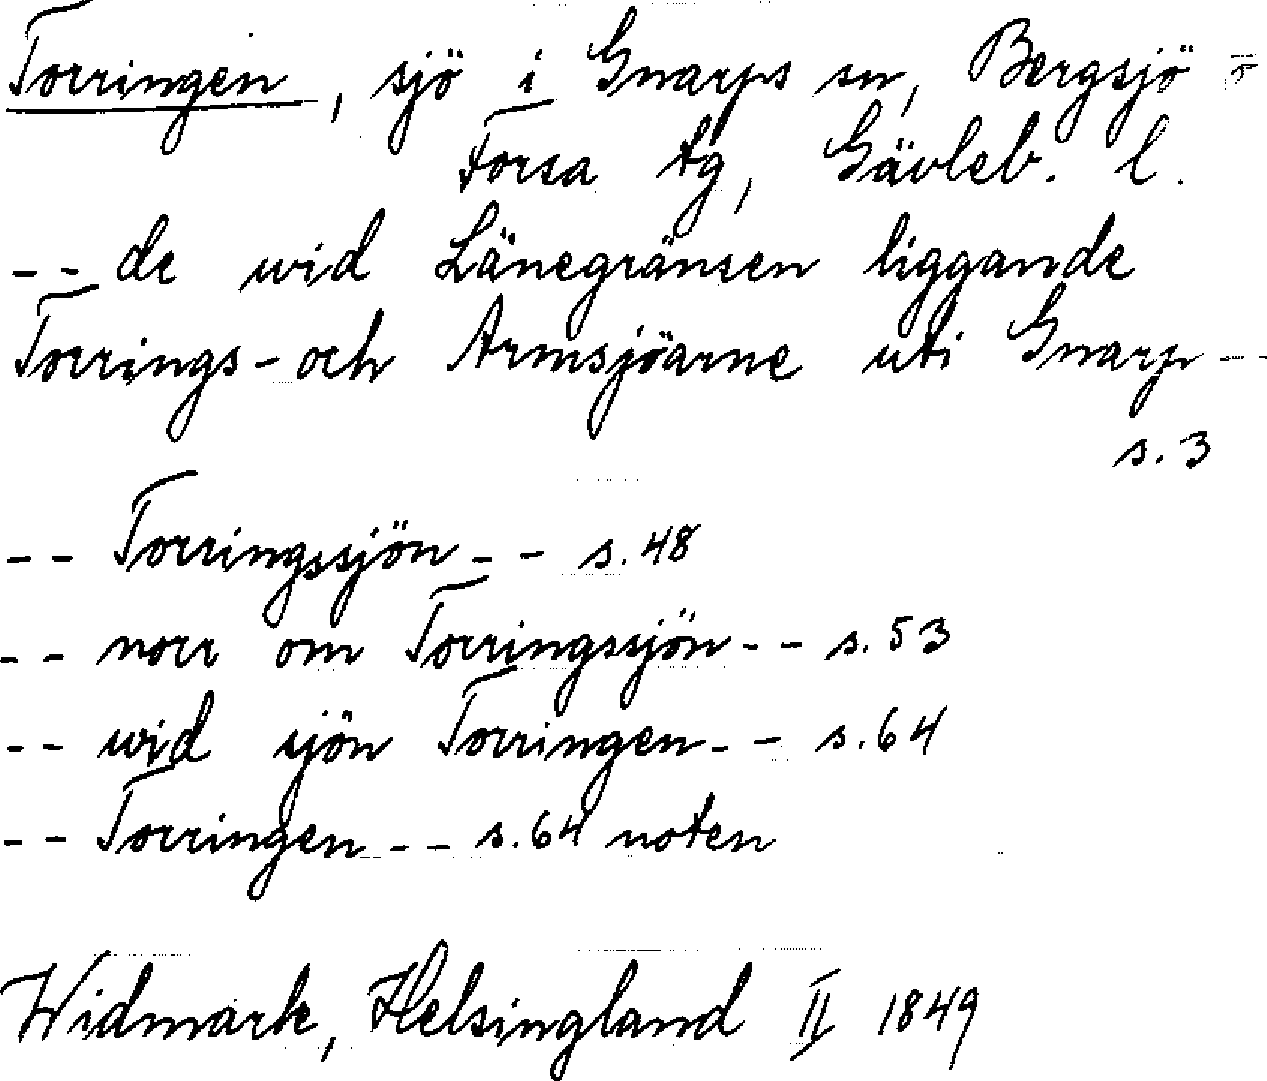 Torringen, sjö i Gnarps sn, Bergsjö o
Forsa tg, Gävleb. l.
-- de wid Länegränsen liggande
Torrings- och Armsjöarne uti Gnarp --
s. 3
-- Torringssjön -- s. 48
-- norr om Torringssjön -- s. 53
-- wid sjön Torringen -- s. 64
-- Torringen -- s. 64 noten
Widmark, Helsingland II 1849